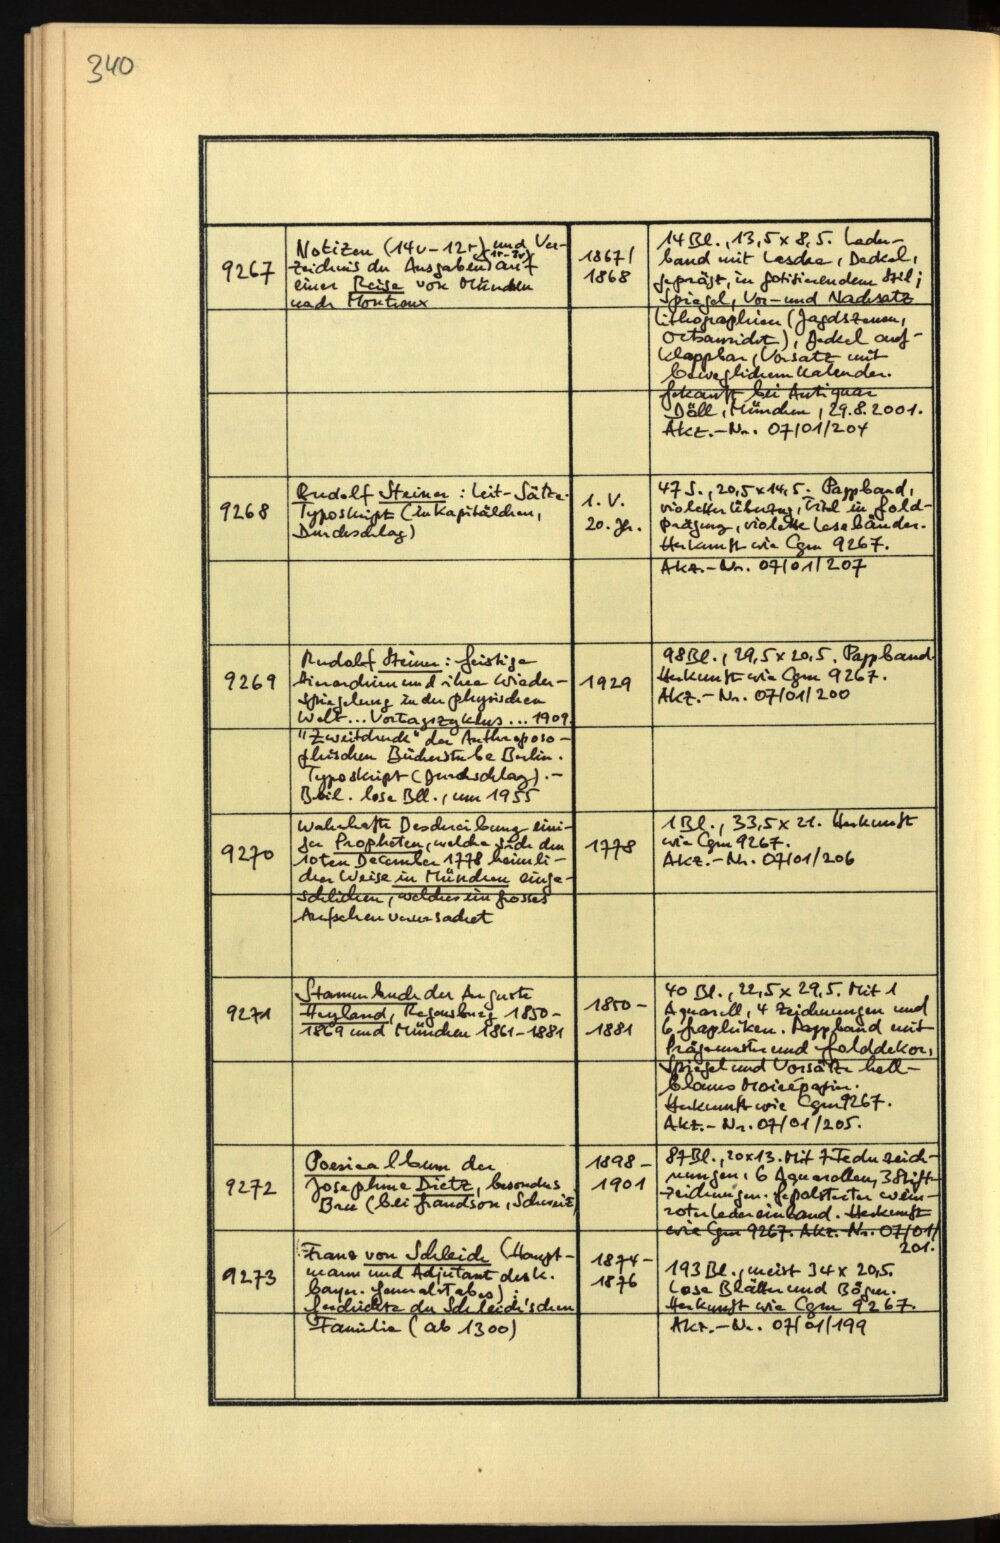 340
9267
Notizen (14v–12r) und Ver-
(1r–2v)
zeichnis der Ausgaben auf
einer Reise von München
nach Montreux
1867/
1868
14 Bl., 13,5 x 8,5. Leder-
band mit Lasche, Deckel,
geprägt, in gotisierendem Stil;
Spiegel, Vor- und Nachsatz
Lithographien (Jagdszenen,
Ortsansicht), Deckel auf-
klappbar, Vorsatz mit
beweglichem Kalender.
Gekauft bei Antiquar
Döll, München, 29.8.2001.
Akz.-Nr. 07/01/204
9268
Rudolf Steiner: Leit-Sätze.
Typoskript (in Kapitälchen,
Durchschlag)
1. V.
20. Jh.
47 S., 20,5 x 14,5. Pappband,
violetter Überzug, Titel in Gold-
prägung, violette Lesebänder.
Herkunft wie Cgm 9267.
Akz.-Nr. 07/01/207
9269
Rudolf Steiner: Geistige
Hierarchien und ihre Wieder-
spiegelung in der physischen
Welt... Vortragszyklus... 1909.
"Zweitdruck" der Anthroposo-
phischen Bücherstube Berlin.
Typoskript (Durchschlag).-
Beil. lose Bll., um 1955
1929
98 Bl., 29,5 x 20,5. Pappband
Herkunft wie Cgm 9267.
Akz.-Nr. 07/01/200
9270
Wahrhafte Beschreibung eini-
ger Propheten, welche sich den
10ten December 1778 heimli-
cher Weise in München einge-
schlichen, welches ein grosses
Aufsehen verursachet
1778
1 Bl., 33,5 x 21. Herkunft
wie Cgm 9267.
Akz.-Nr. 07/01/206
9271
Stammbuch der Auguste
Heyland, Regensburg 1850–
1869 und München 1861–1881
1850–
1881
40 Bl., 22,5 x 29,5. Mit 1
Aquarell, 4 Zeichnungen und
6 Graphiken. Pappband mit
Prägemuster und Golddekor,
Spiegel und Vorsätze hell-
blaues Moirépapier.
Herkunft wie Cgm 9267.
Akz.-Nr. 07/01/205.
9272
Poesiealbum der
Josephine Dietz, besonders
Bru (bei Grandson, Schweiz)
1898–
1901
87 Bl., 20x13. Mit 7 Federzeich-
nungen, 6 Aquarellen, 3 Stift-
zeichnungen. Gepolsterter wein-
roter Ledereinband. Herkunft
wie Cgm 9267. Akz.-Nr. 07/01/
201.
9273
Franz von Schleich (Haupt-
mann und Adjutant des k.
bayer. Generalstabes):
Geschichte der Schleich'schen
Familie (ab 1300)
1874–
1876
193 Bl., meist 34 x 20,5.
Lose Blätter und Bögen.
Herkunft wie Cgm 9267.
Akz.-Nr. 07/01/199